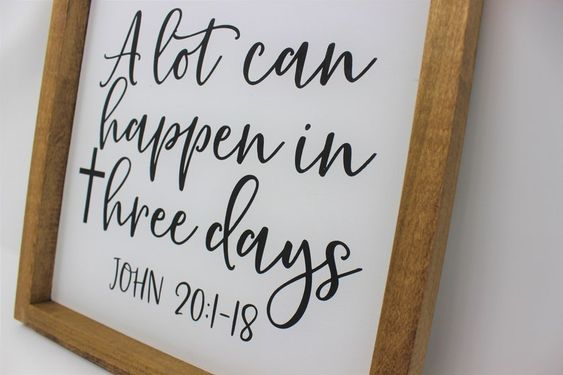 A lot can
happen in
three days
JOHN 20:1-18